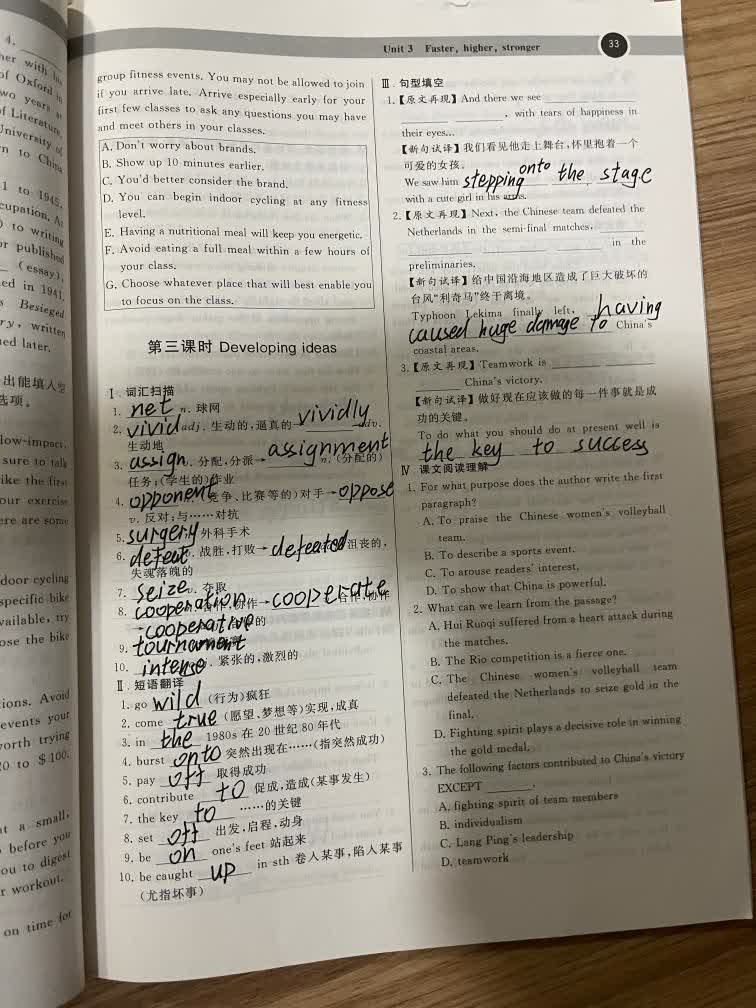 4.
her with his
of Oxford in
wo years as
of Literature,
University of
n to China
1 to 1945,
cupation. At
) to writing
or published
(essay),
ed in 1941,
s Besieged
ry, written
ed later.
出能填入空
选项。
low-impact,
sure to talk
ike the first
our exercise
ere are some
door cycling
specific bike
vailable, try
ose the bike
ions. Avoid
events your
orth trying
20 to $100.
at a small,
before you
ou to digest
r workout.
on time for
Unit 3 Faster, higher, stronger 33
group fitness events. You may not be allowed to join
if you arrive late. Arrive especially early for your
first few classes to ask any questions you may have
and meet others in your classes.
A. Don't worry about brands.
B. Show up 10 minutes earlier.
C. You'd better consider the brand.
D. You can begin indoor cycling at any fitness
level.
E. Having a nutritional meal will keep you energetic.
F. Avoid eating a full meal within a few hours of
your class.
G. Choose whatever place that will best enable you
to focus on the class.
第三课时 Developing ideas
Ⅰ. 词汇扫描
1. net n. 球网
2. vivid adj. 生动的,逼真的→ vividly adv.
生动地
3. assign v. 分配,分派→ assignment n. (分配的)
任务;(学生的)作业
4. opponent 竞争、比赛等的)对手→ oppose
v. 反对;与……对抗
5. surgery 外科手术
6. defeat v. 战胜,打败→ defeated 沮丧的,
失魂落魄的
7. seize v. 夺取
8. cooperation 合作,协作→ cooperate 合作,协作
→ cooperative 的
9. tournament
10. intense adj. 紧张的,激烈的
Ⅱ. 短语翻译
1. go wild (行为)疯狂
2. come true (愿望、梦想等)实现,成真
3. in the 1980s 在 20 世纪 80 年代
4. burst onto 突然出现在……(指突然成功)
5. pay off 取得成功
6. contribute to 促成,造成(某事发生)
7. the key to ……的关键
8. set off 出发,启程,动身
9. be on one's feet 站起来
10. be caught up in sth 卷入某事,陷入某事
(尤指坏事)
Ⅲ. 句型填空
1.【原文再现】And there we see
, with tears of happiness in
their eyes...
【新句试译】我们看见他走上舞台,怀里抱着一个
可爱的女孩。
We saw him stepping onto the stage
with a cute girl in his arms.
2.【原文再现】Next, the Chinese team defeated the
Netherlands in the semi-final matches,
in the
preliminaries.
【新句试译】给中国沿海地区造成了巨大破坏的
台风“利奇马”终于离境。
Typhoon Lekima finally left, having
caused huge damage to China's
coastal areas.
3.【原文再现】Teamwork is
China's victory.
【新句试译】做好现在应该做的每一件事就是成
功的关键。
To do what you should do at present well is
the key to success
Ⅳ 课文阅读理解
1. For what purpose does the author write the first
paragraph?
A. To praise the Chinese women's volleyball
team.
B. To describe a sports event.
C. To arouse readers' interest.
D. To show that China is powerful.
2. What can we learn from the passage?
A. Hui Ruoqi suffered from a heart attack during
the matches.
B. The Rio competition is a fierce one.
C. The Chinese women's volleyball team
defeated the Netherlands to seize gold in the
final.
D. Fighting spirit plays a decisive role in winning
the gold medal.
3. The following factors contributed to China's victory
EXCEPT ______.
A. fighting spirit of team members
B. individualism
C. Lang Ping's leadership
D. teamwork